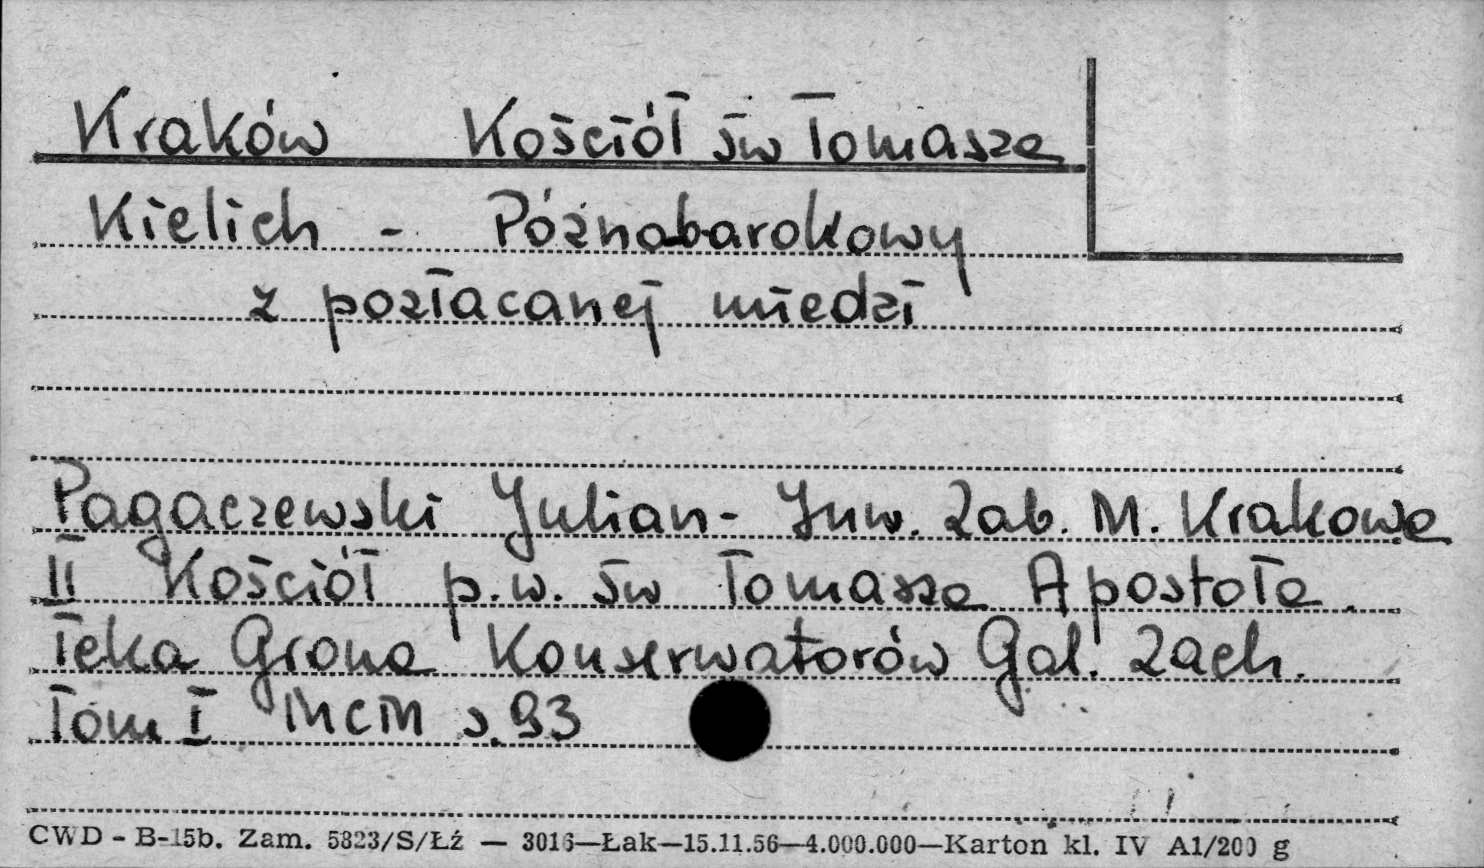 Kraków Kościół św Tomasza
Kielich - Późnobarokowy
z pozłacanej miedzi
Pagaczewski Julian - Inw. Zab. M. Krakowa
II Kościół p.w. św Tomasza Apostoła.
Teka Grona Konserwatorów Gal. Zach.
Tom I MCM s. 93
CWD - B-15b. Zam. 5823/S/Łź — 3016—Łak—15.11.56—4.000.000—Karton kl. IV A1/200 g